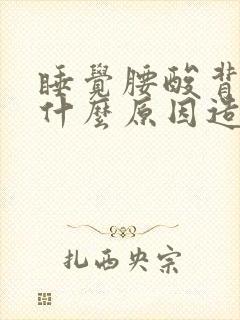 睡覺腰酸背
什麼原因造
扎西央宗